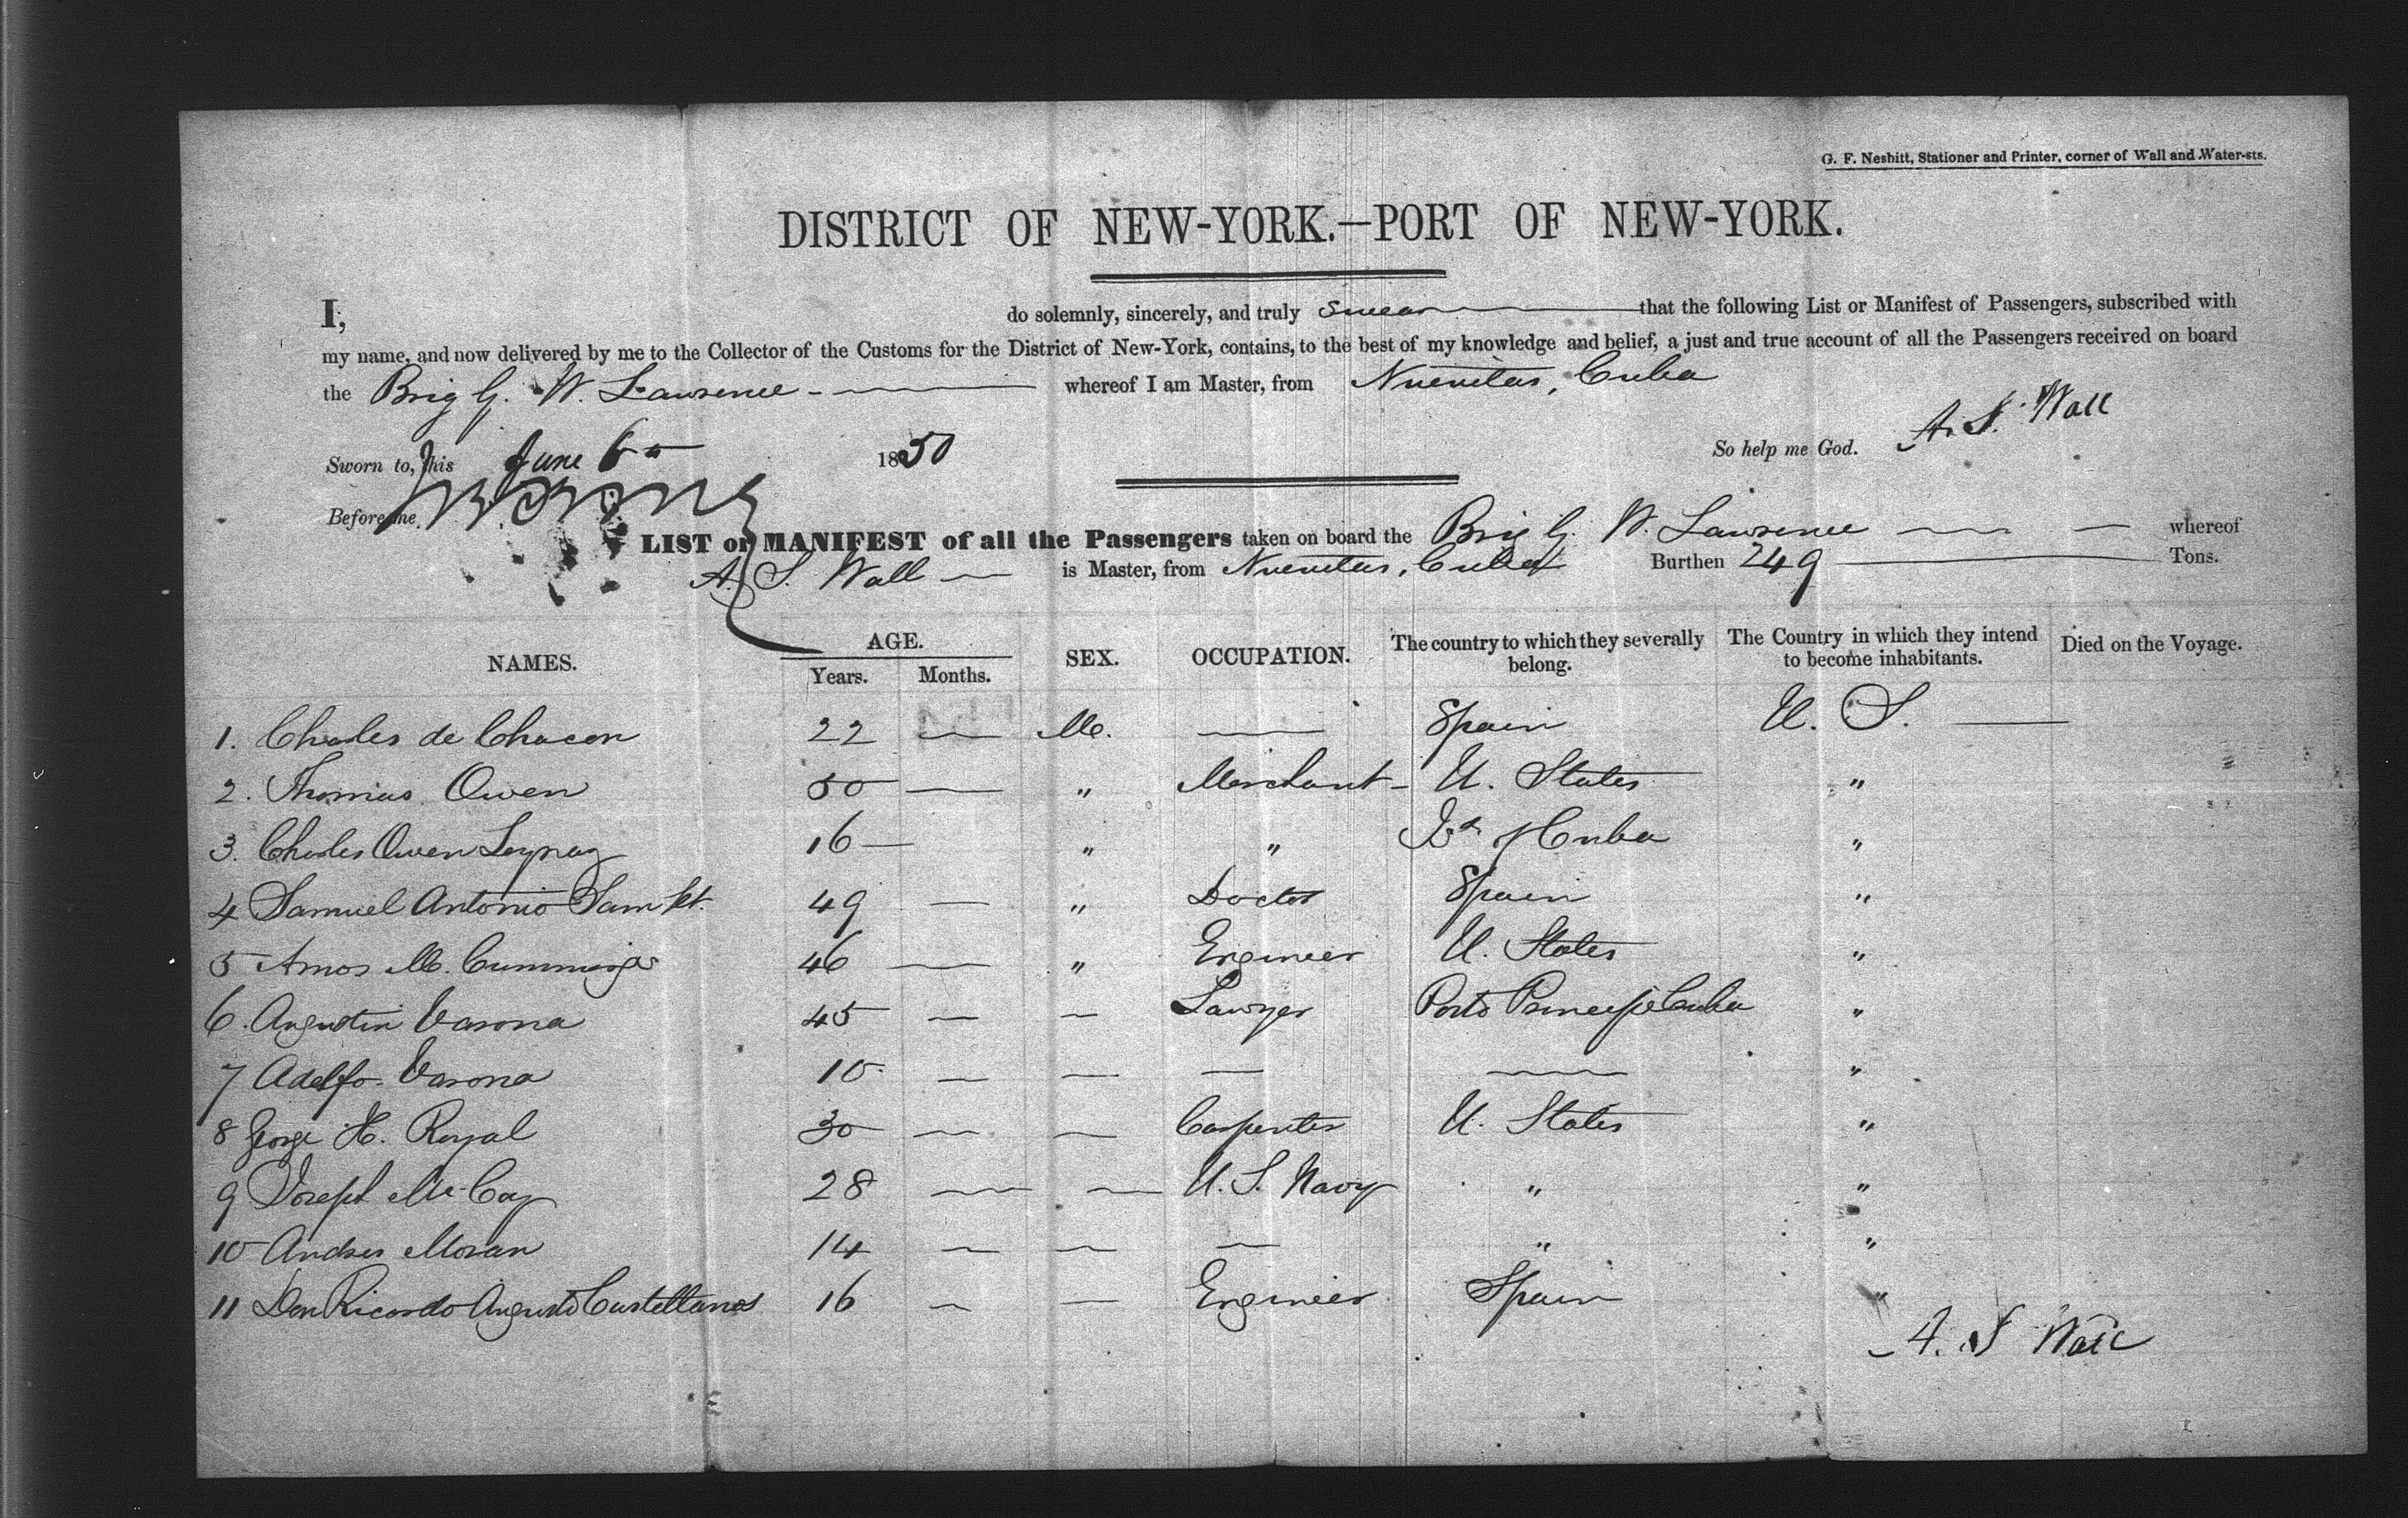 G. F. Nesbitt, Stationer and Printer, corner of Wall and Water-sts.
DISTRICT OF NEW-YORK.—PORT OF NEW-YORK.
I, do solemnly, sincerely, and truly swear that the following List or Manifest of Passengers, subscribed with
my name, and now delivered by me to the Collector of the Customs for the District of New-York, contains, to the best of my knowledge and belief, a just and true account of all the Passengers received on board
the Brig G. W. Lawrence whereof I am Master, from Nuevitas, Cuba
Sworn to, this June 6 1850 So help me God. A. S. Wall
Before me,
LIST or MANIFEST of all the Passengers taken on board the Brig G. W. Lawrence whereof
A. S. Wall is Master, from Nuevitas, Cuba Burthen 249 Tons.
NAMES. AGE. Years. Months. SEX. OCCUPATION. The country to which they severally belong. The Country in which they intend to become inhabitants. Died on the Voyage.
1. Charles de Chacon 22 — M. — Spain U. S. —
2. Thomas Owen 50 — " Merchant - U. States "
3. Charles Owen 16 — " " Cuba "
4 Samuel Antonio 49 — " Doctor Spain "
5 Amos M. Cummings 46 — " Engineer U. States "
6. Augustin Varona 45 — — Lawyer Porto Principe Cuba "
7 Adolfo Varona 10 — — — — "
8 George H. Royal 30 — — Carpenter U. States "
9 Joseph McCoy 28 — — U. S. Navy " "
10 Andres Moran 14 — — — " "
11 Don Ricardo Augusto Castellanos 16 — — Engineer Spain "
A. S Wall